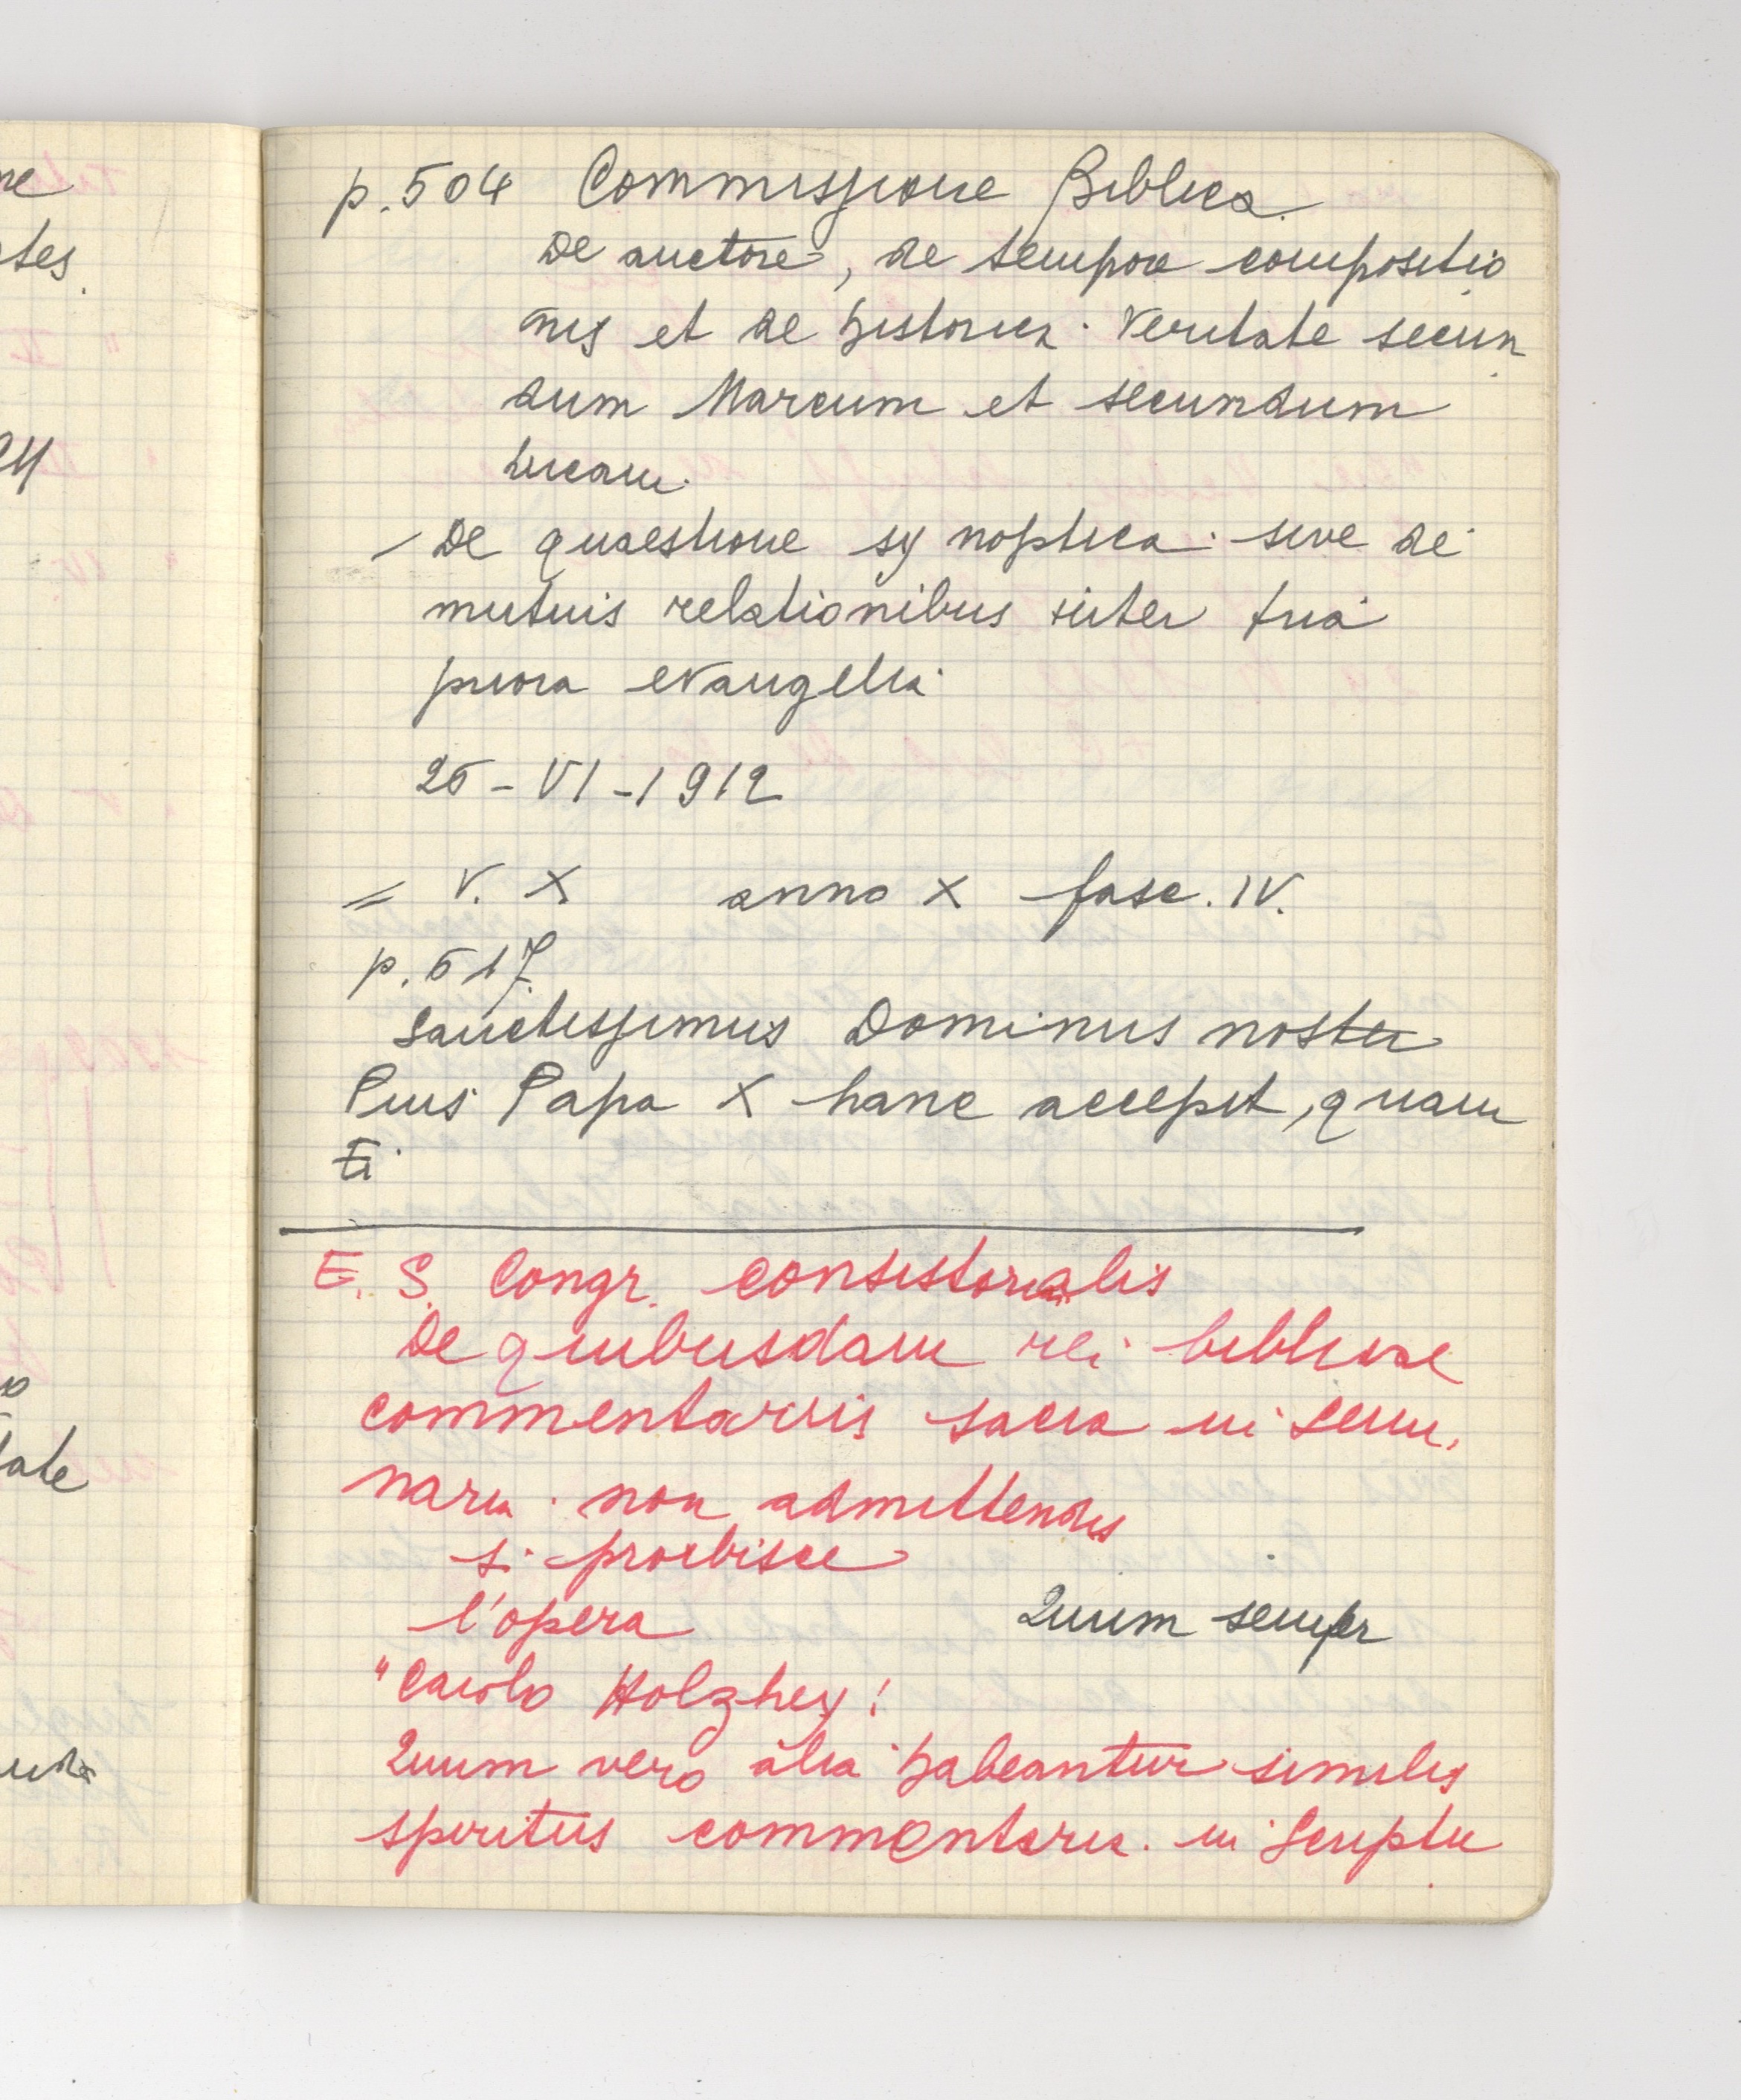 p. 504 Commissione Biblica.
De auctore, de tempore compositio
nis et de historica veritate secun
dum Marcum et secundum
Lucam.
- De quaestione synoptica sive de
mutuis relationibus inter tria
priora evangelia
26-VI-1912
= V. X anno X fasc. IV.
p. 517.
Sanctissimus Dominus noster
Pius Papa X hanc accepit, quam
Ei
E. S. Congr. consistorialis
De quibusdam rei biblicae
commentariis sacra in semi.
naria non admittendis
si proibisce
l'opera
Quum semper
"Carolo Holzhey!
Quum vero alia habeantur similis
spiritus commentaria in Scriptu
ne
tes.
tate